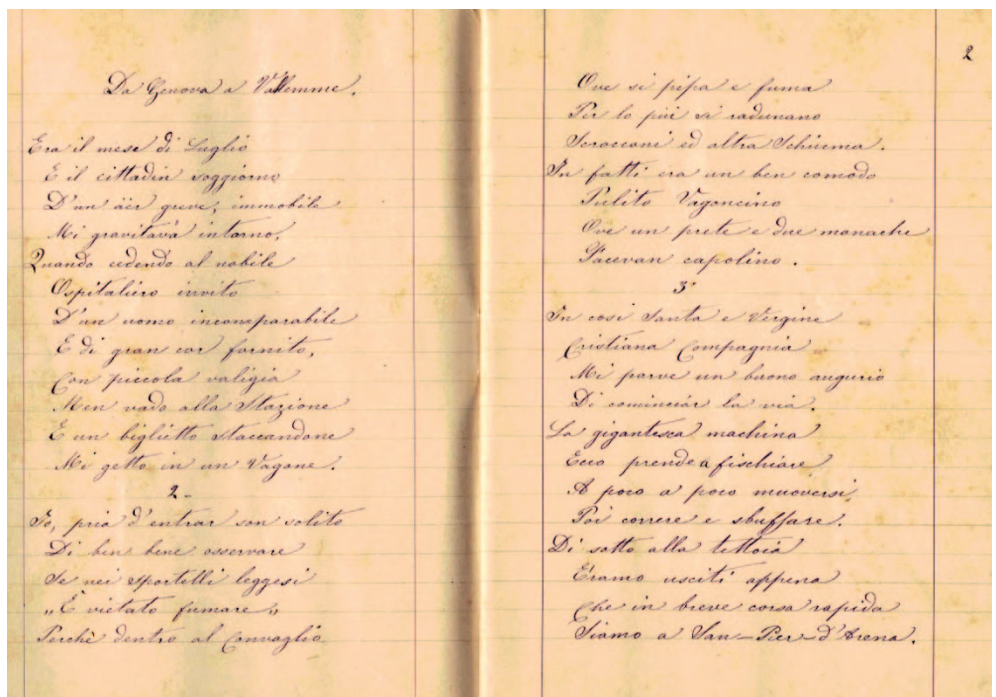 Da Genova a Vallemme.
Era il mese di Luglio
E il cittadin soggiorno
D'un äer greve, immobile
Mi gravitava intorno,
Quando cedendo al nobile
Ospitaliero invito
D'un uomo incomparabile
E di gran cor fornito,
Con piccola valigia
Men vado alla Stazione
E un biglietto staccandone
Mi getto in un Vagone.
2-
Io, pria d'entrar son solito
Di ben bene osservare
Se nei sportelli leggesi
„È vietato fumare„
Perchè dentro al Convoglio
2
Ove si pipa e fuma
Per lo più si radunano
Scrocconi ed altra Schiuma.
In fatti era un ben comodo
Pulito Vagoncino
Ove un prete e due monache
Facevan capolino.
3°
In così Santa e Vergine
Cristiana Compagnia
Mi parve un buono augurio
Di cominciàr la via.
La gigantesca machina
Ecco prende a fischiare
A poco a poco muoversi
Poi correre e sbuffare.
Di sotto alla tettoia
Eramo usciti appena
Che in breve corsa rapida
Siamo a San-Pier-d'Arena.